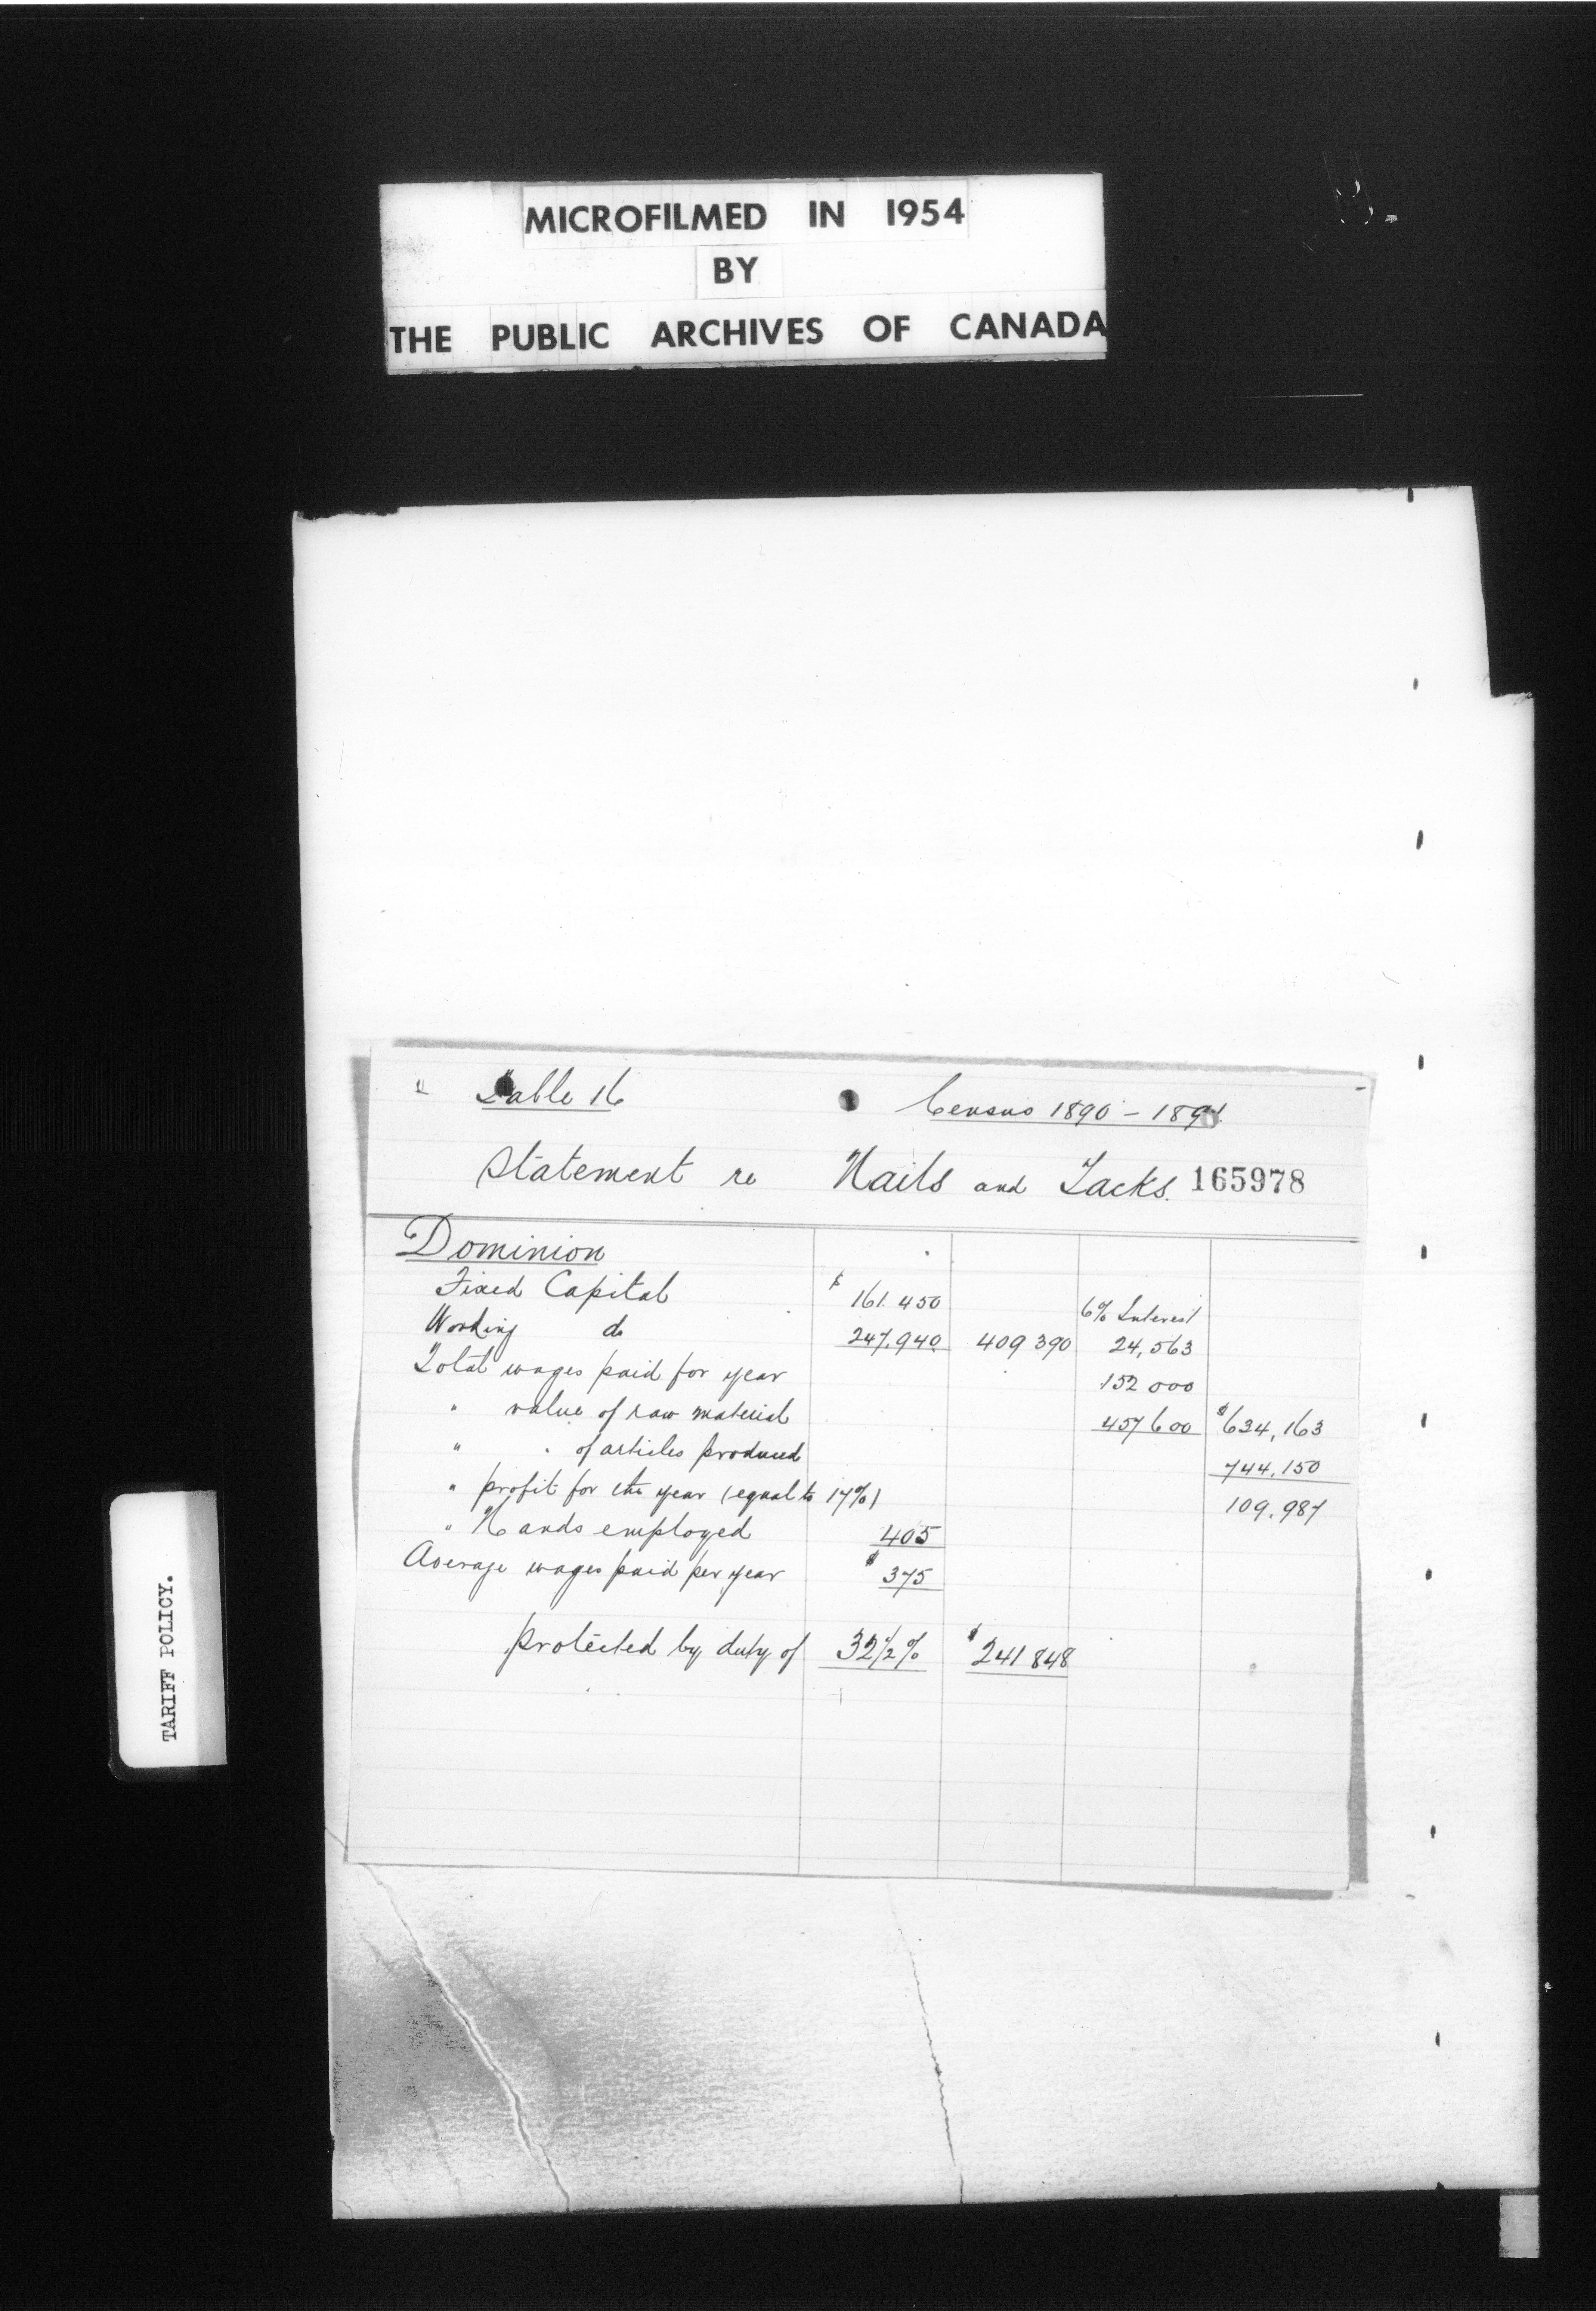 MICROFILMED IN 1954
BY
THE PUBLIC ARCHIVES OF CANADA
Table 16 Census 1890 - 1891
Statement re Nails and Tacks. 165978
Dominion
Fixed Capital $ 161.450 6% Interest
Working do 247.940 409 390 24,563
Total wages paid for year 152 000
" value of raw material 457 600 $634,163
" " of articles produced 744.150
" profit for the year (equal to 17%) 109.987
" Hands employed 405
Average wages paid per year $ 375
protected by duty of 32 1/2 % $ 241 848
TARIFF POLICY.